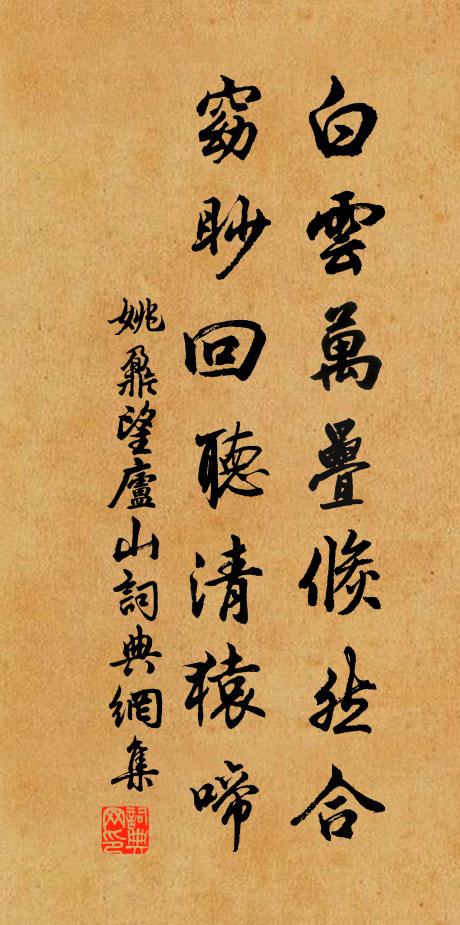 白雲萬疊倏然合
窈眇回聽清猿啼
姚鼐望廬山詞典網集
詞典網印